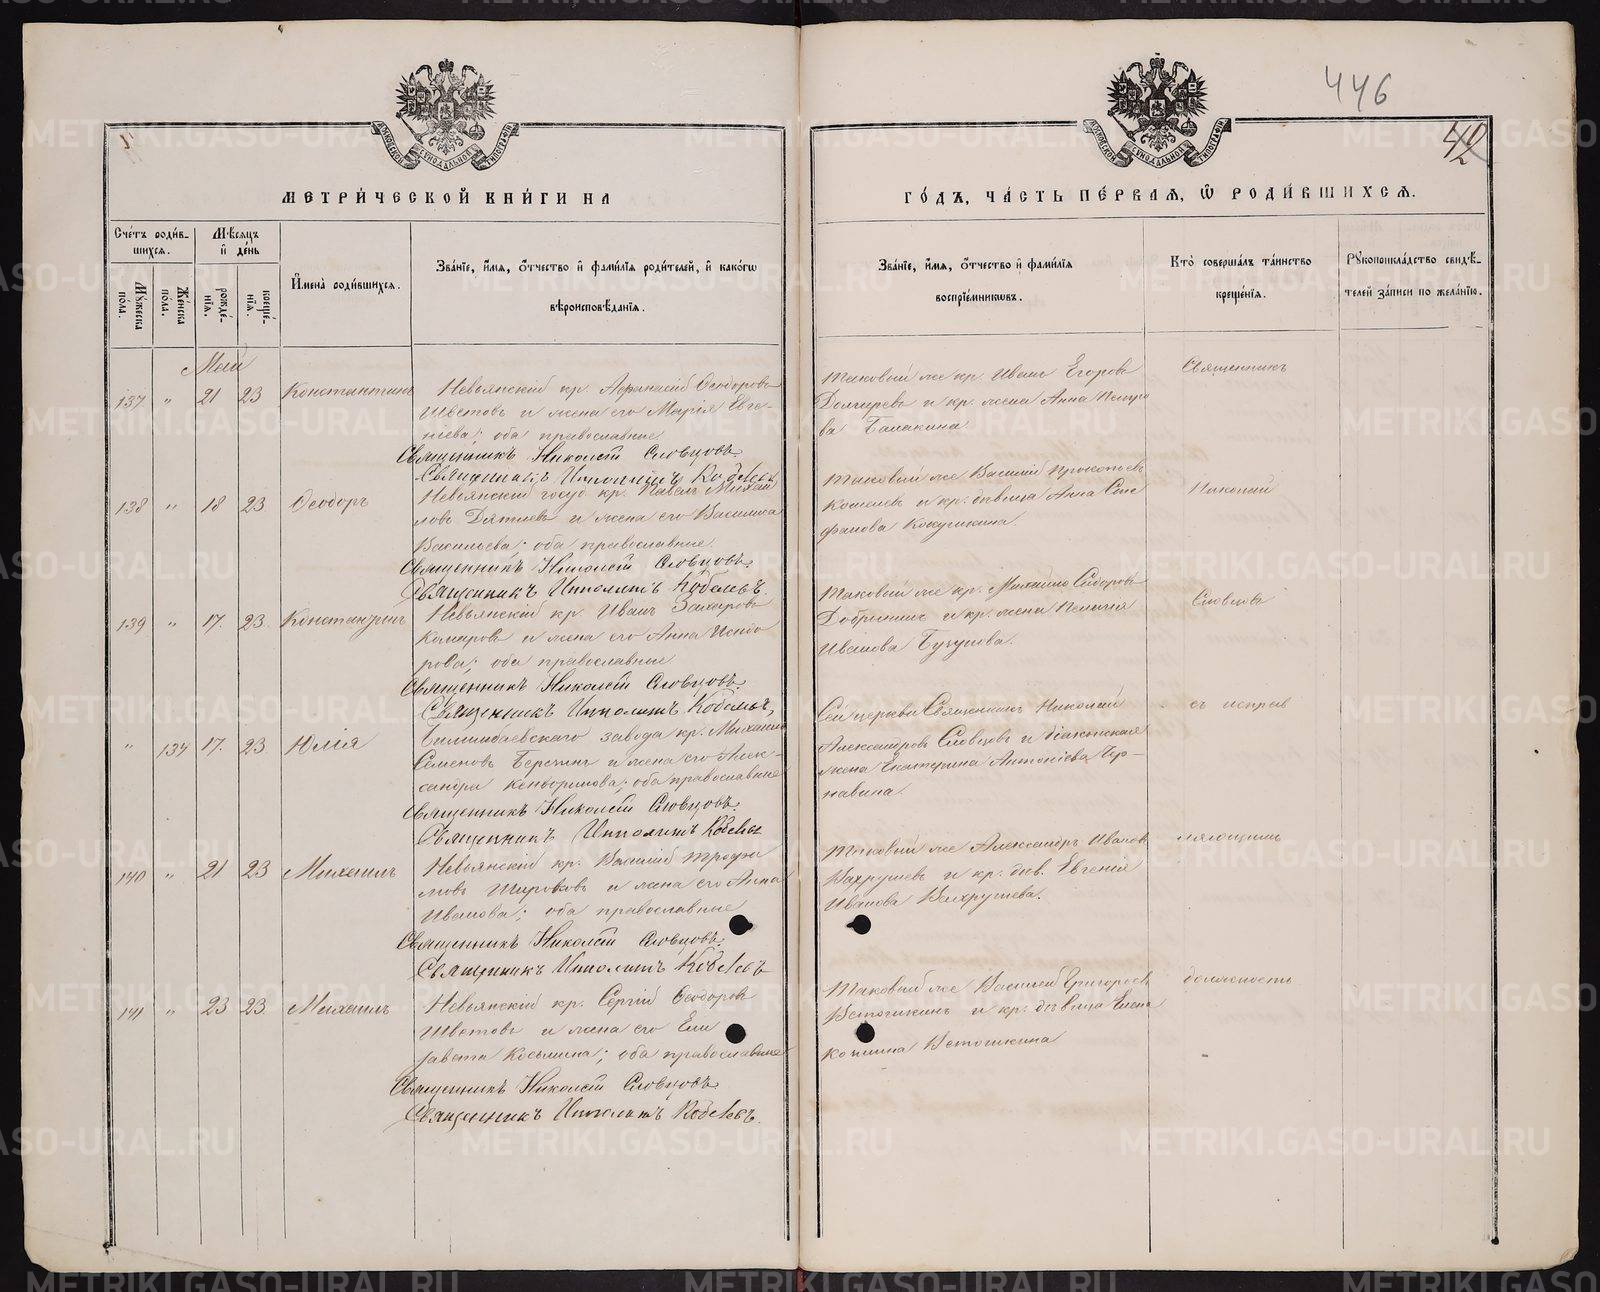 446
42
МЕТРИЧЕСКОЙ КНИГИ НА
ГОДЪ, ЧАСТЬ ПЕРВАЯ, Ѡ РОДИВШИХСЯ.
Счетъ родив-
шихся.
Мужеска
пола.
Женска
пола.
Мѣсяцъ
и день
рожде-
нія.
креще-
нія.
Имена родившихся.
Званіе, имя, отчество и фамилія родителей, и какогѡ
вѣроисповѣданія.
Званіе, имя, отчество и фамилія
воспріемникѡвъ.
Кто совершалъ таинство
крещенія.
Рукоприкладство свидѣ-
телей записи по желанію.
Май
137 " 21 23 Константинъ
Невьянскій кр. Афанасій Ѳеодоровъ
Цвѣтовъ и жена его Марія Евге-
ніева; оба православные
Священникъ Николай Словцовъ.
Священникъ Ипполитъ Кобелевъ
Таковый же кр. Иванъ Егоровъ
Долгиревъ и кр. жена Анна Петро
ва Балакина
Священникъ
138 " 18 23 Ѳеодоръ
Невьянскій госуд. кр. Павелъ Михай
ловъ Дятлевъ и жена его Василиса
Васильева; оба православные.
Священникъ Николай Словцовъ.
Священникъ Ипполитъ Кобелевъ.
Таковый же Василій Прокопьевъ
Кошелевъ и кр: дѣвица Анна Сте
фанова Кокушкина.
Николай
139 " 17. 23 Константинъ
Невьянскій кр. Иванъ Захаровъ
Комаровъ и жена его Анна Исидо
рова; оба православные
Священникъ Николай Словцовъ.
Священникъ Ипполитъ Кобелевъ,
Таковый же кр. Михаилъ Сидоровъ
Добрынинъ и кр. жена Пелагія
Иванова Бугушева.
Словцовъ
" 134 17. 23 Юлія
Билимбаевскаго завода кр. Михаилъ
Семеновъ Березинъ и жена его Алек-
сандра; оба православные
Священникъ Николай Словцовъ.
Священникъ Ипполитъ Кобелевъ
Сей церкви Священникъ Николай
Александровъ Словцовъ и діаконская
жена Екатерина Антоніева Чер-
навина.
съ исправ
140 " 21 23 Михаилъ
Невьянскій кр. Василій Трофи
мовъ Широковъ и жена его Анна
Иванова; оба православные
Священникъ Николай Словцовъ.
Священникъ Ипполитъ Кобелевъ
Таковый же Александръ Ивановъ
Вахрушевъ и кр. дѣв. Евгенія
Иванова Вахрушева.
ляющимъ
141 " 23 23 Михаилъ
Невьянскій кр. Сергій Ѳеодоровъ
Цвѣтовъ и жена его Ели
завета Косьмина; оба православные
Священникъ Николай Словцовъ
Священникъ Ипполитъ Кобелевъ.
Таковый же Василій Григорьевъ
Ветошкинъ и кр. дѣвица Елена
Ветошкина
должность
METRIKI.GASO-URAL.RU